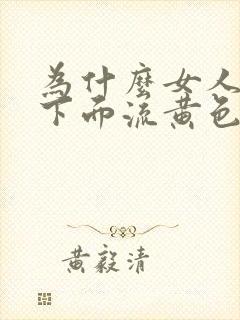 為什麼女人
下面流黃色
黃毅清